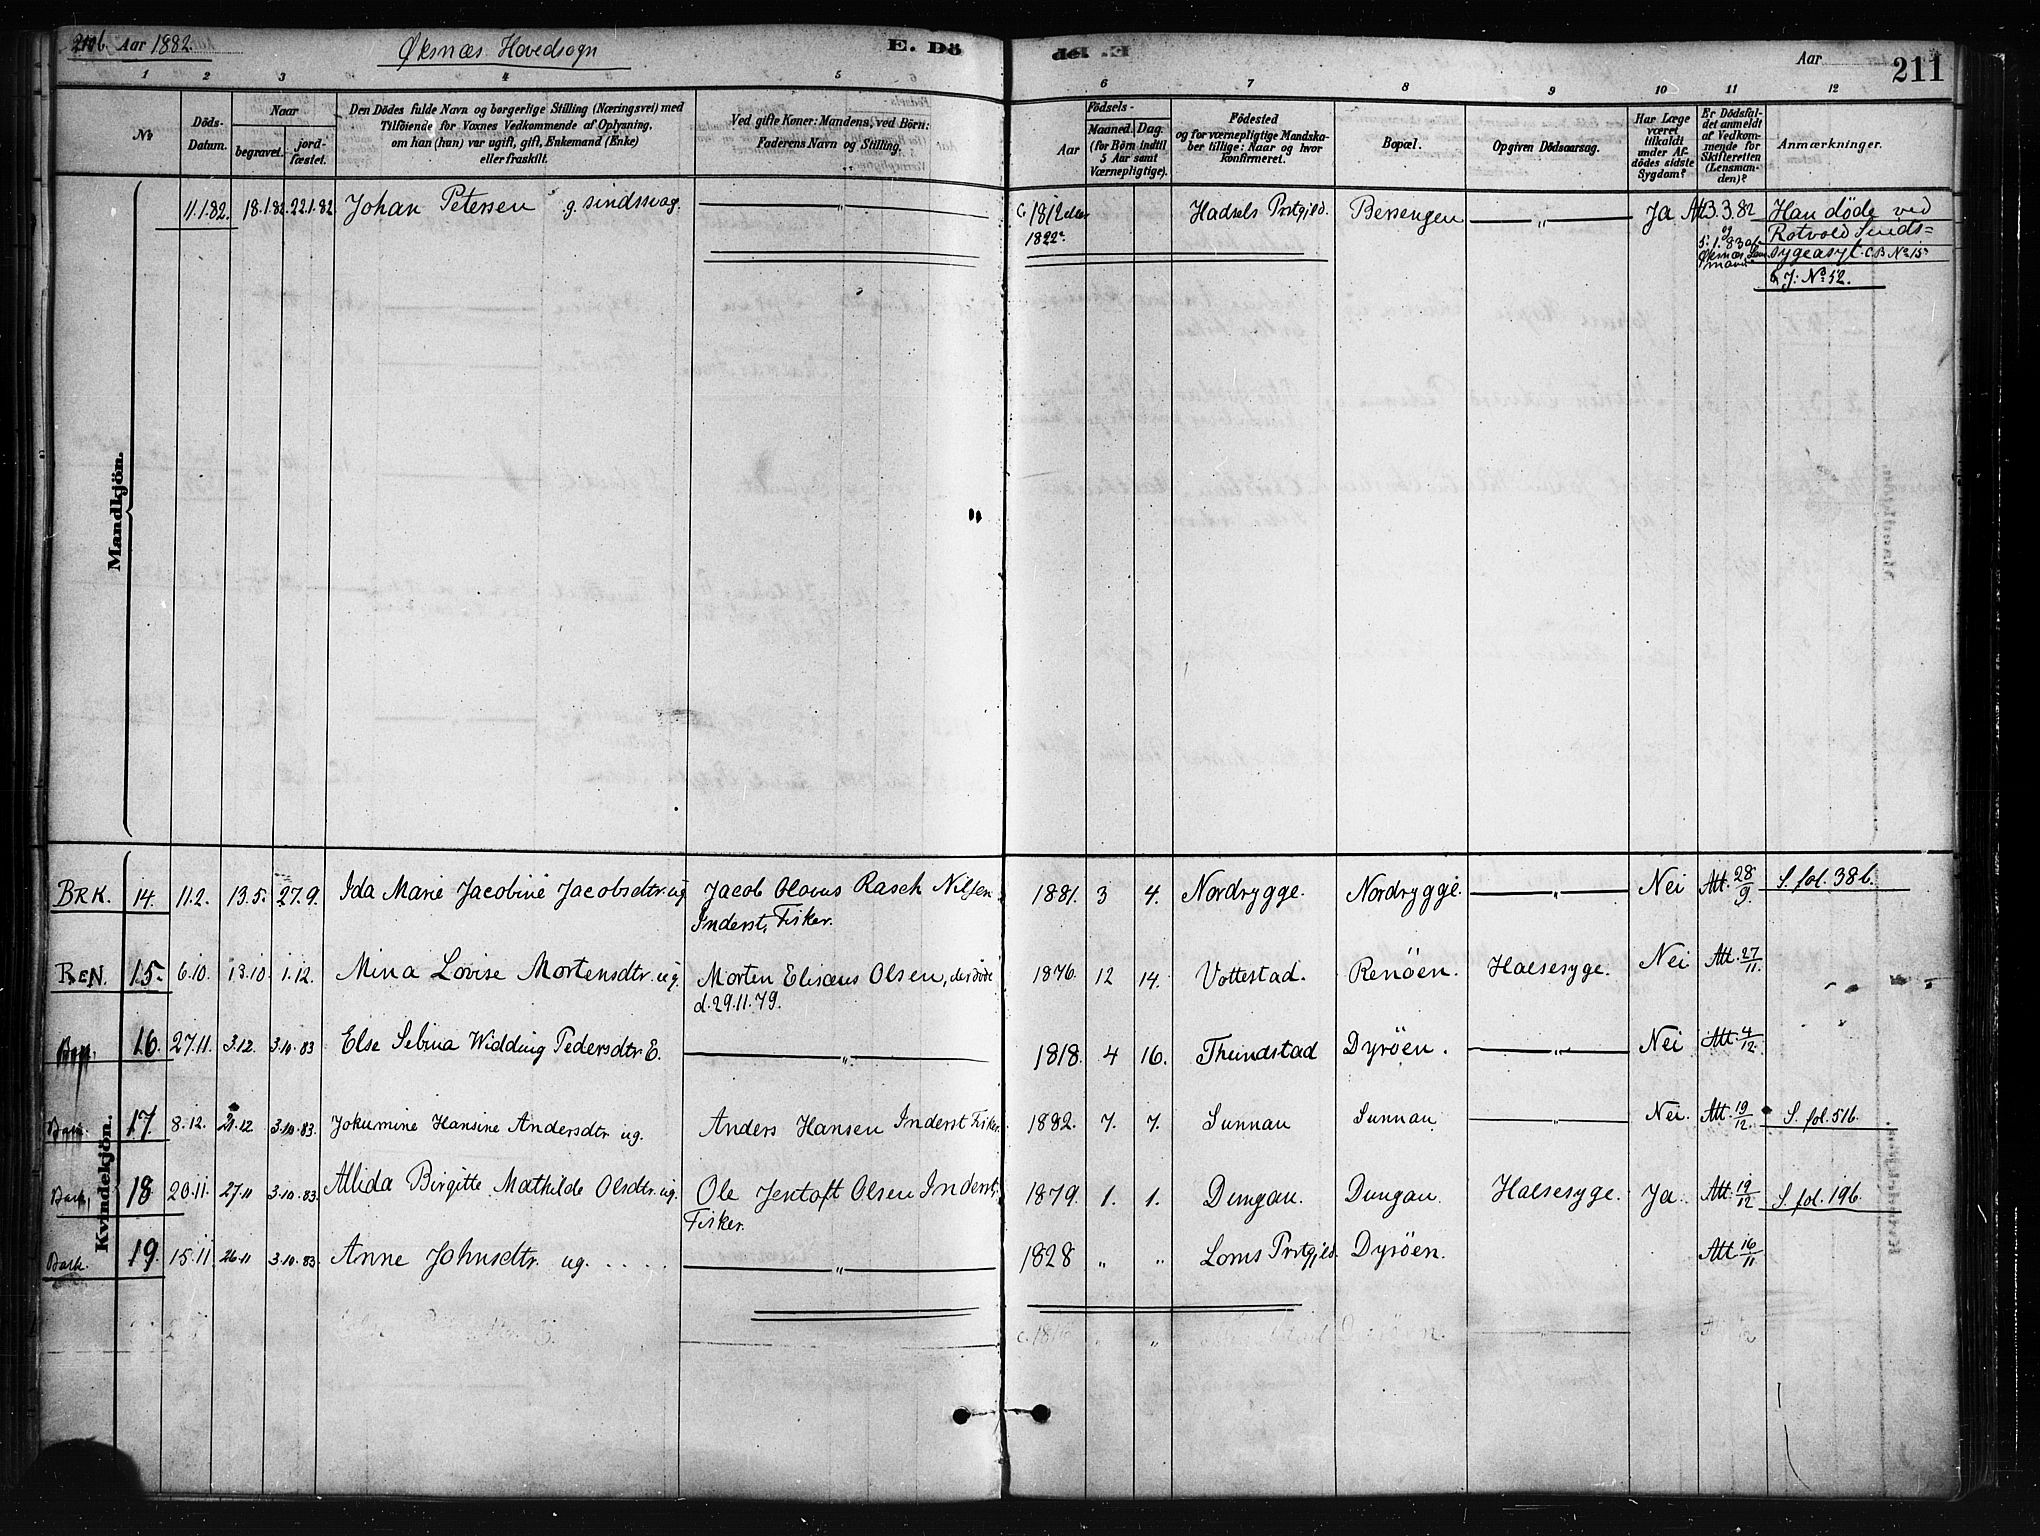 210b. Aar 1882. Øksnæs Hovedsogn E. Dö
Aar 211
1 2 3 4 5 6 7 8 9 10 11 12
No
Döds-
Datum.
Naar
begravet.
jord-
fæstet.
Den Dödes fulde Navn og borgerlige Stilling (Næringsvei) med
Tilföiende for Voxnes Vedkommende af Oplysning,
om han (hun) var ugift, gift, Enkemand (Enke)
eller fraskilt.
Ved gifte Koner: Mandens, ved Börn:
Faderens Navn og Stilling.
Födsels-
Aar
Maaned. Dag.
(for Börn indtil
5 Aar samt
Værnepligtige).
Födested
og for værnepligtige Mandska-
ber tillige: Naar og hvor
konfirmeret.
Bopæl.
Opgiven Dödsaarsag.
Har Læge
været
tilkaldt
under Af-
dödes sidste
Sygdom?
Er Dödsfal-
det anmeldt
af Vedkom-
mende for
Skifteretten
(Lensman-
den)?
Anmærkninger.
Mandkjön.
11.1.82. 18.1.82. 22.1.82 Johan Petersen g. sindssvag. — " — C 1812 eller Hadsels Prstgjld. Bersengen — " — Ja Att. 3.3.82 Han döde ved
1822. og Rotvold Sinds=
5.1.83 af sygeasyl. C.B No 15
Øksnæs
& J: No 52.
Kvindekjön.
BRK. 14. 11.2. 13.5. 27.9. Ida Marie Jacobine Jacobsdtr. ug Jacob Olovus Rasch Nilsen 1881. 3 4. Nordrygge. Nordrygge. — " — Nei Att. 28/9. S. fol. 38b.
Inderst, Fisker.
REN. 15. 6.10. 13.10. 1.12. Mina Lovise Mortensdtr. ug. Morten Elisæus Olsen, der döde 1876. 12 14. Vottestad. Renöen. Halsesyge. Nei Att. 27/11.
d. 29.11.79.
16. 27.11. 3.12. 3.10.83 Else Sebina Widding Pedersdtr. E. — " — 1818. 4 16. Thindstad Dyröen. — " — Nei Att. 4/12.
Bark. 17. 8.12. 21.12 3.10.83. Jokumine Hansine Andersdtr ug. Anders Hansen Inderst Fisker. 1882. 7. 7. Sunnan Sunnan — " — Nei. Att. 19/12. S. fol. 51b.
Bark. 18 20.11. 27.11 3.10.83. Allida Birgitte Mathilde Olsdtr. ug. Ole Jentoft Olsen Inderst, 1879. 1. 1. Dungan. Dungan. Halsesyge. Ja Att. 19/12 S. fol. 19b.
Fisker.
Bark. 19. 15.11. 26.11 3.10.83. Anne Johnsdtr. ug. . . . . — " — 1828 " " Loms Prstgjld. Dyröen. Att 16/11